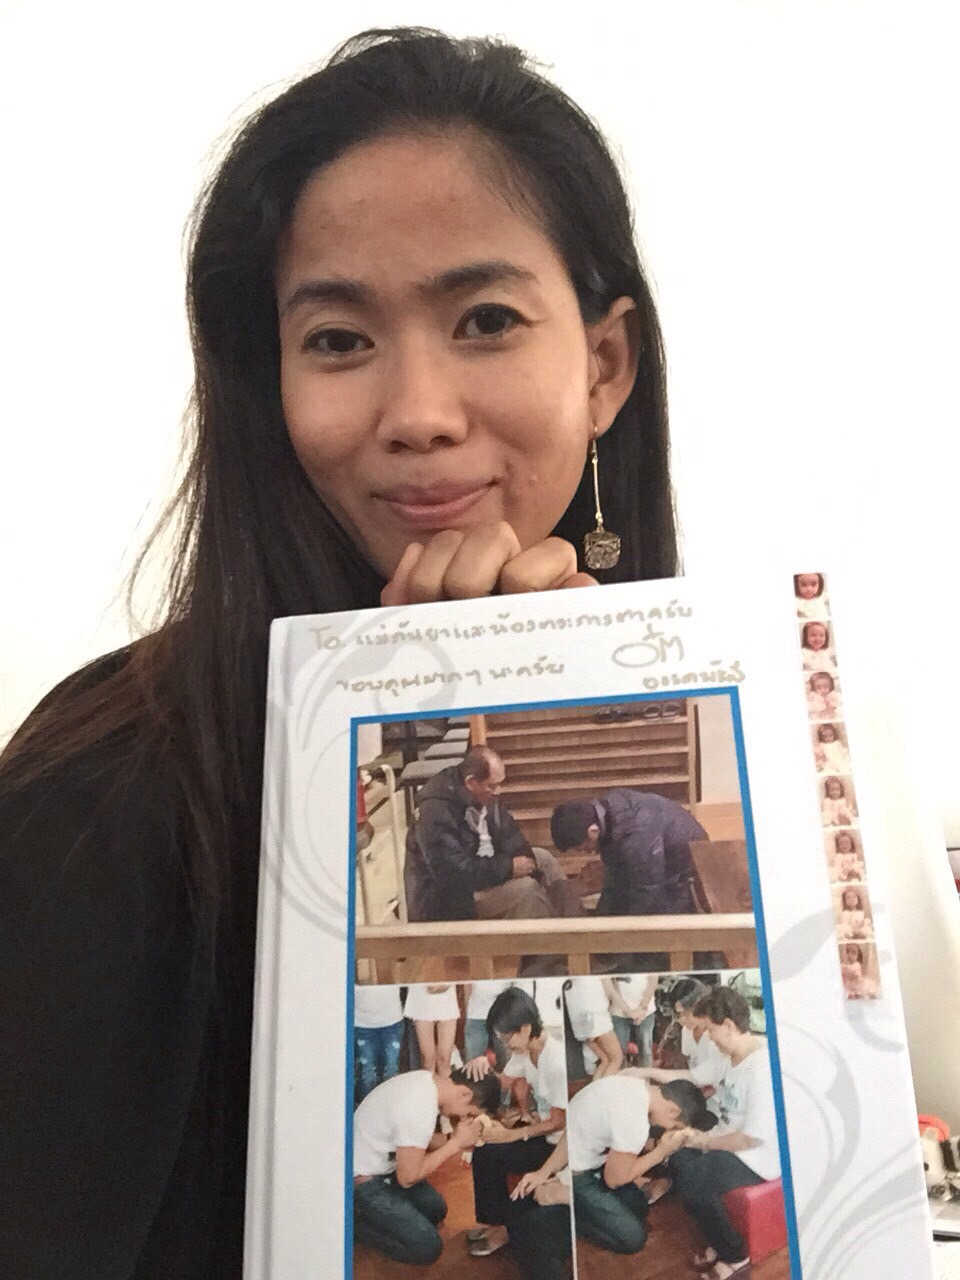 To. แม่กันยาและน้องตระการตาครับ
ขอบคุณมากๆ นะครับ
อั๋ต
อรรคพันธ์